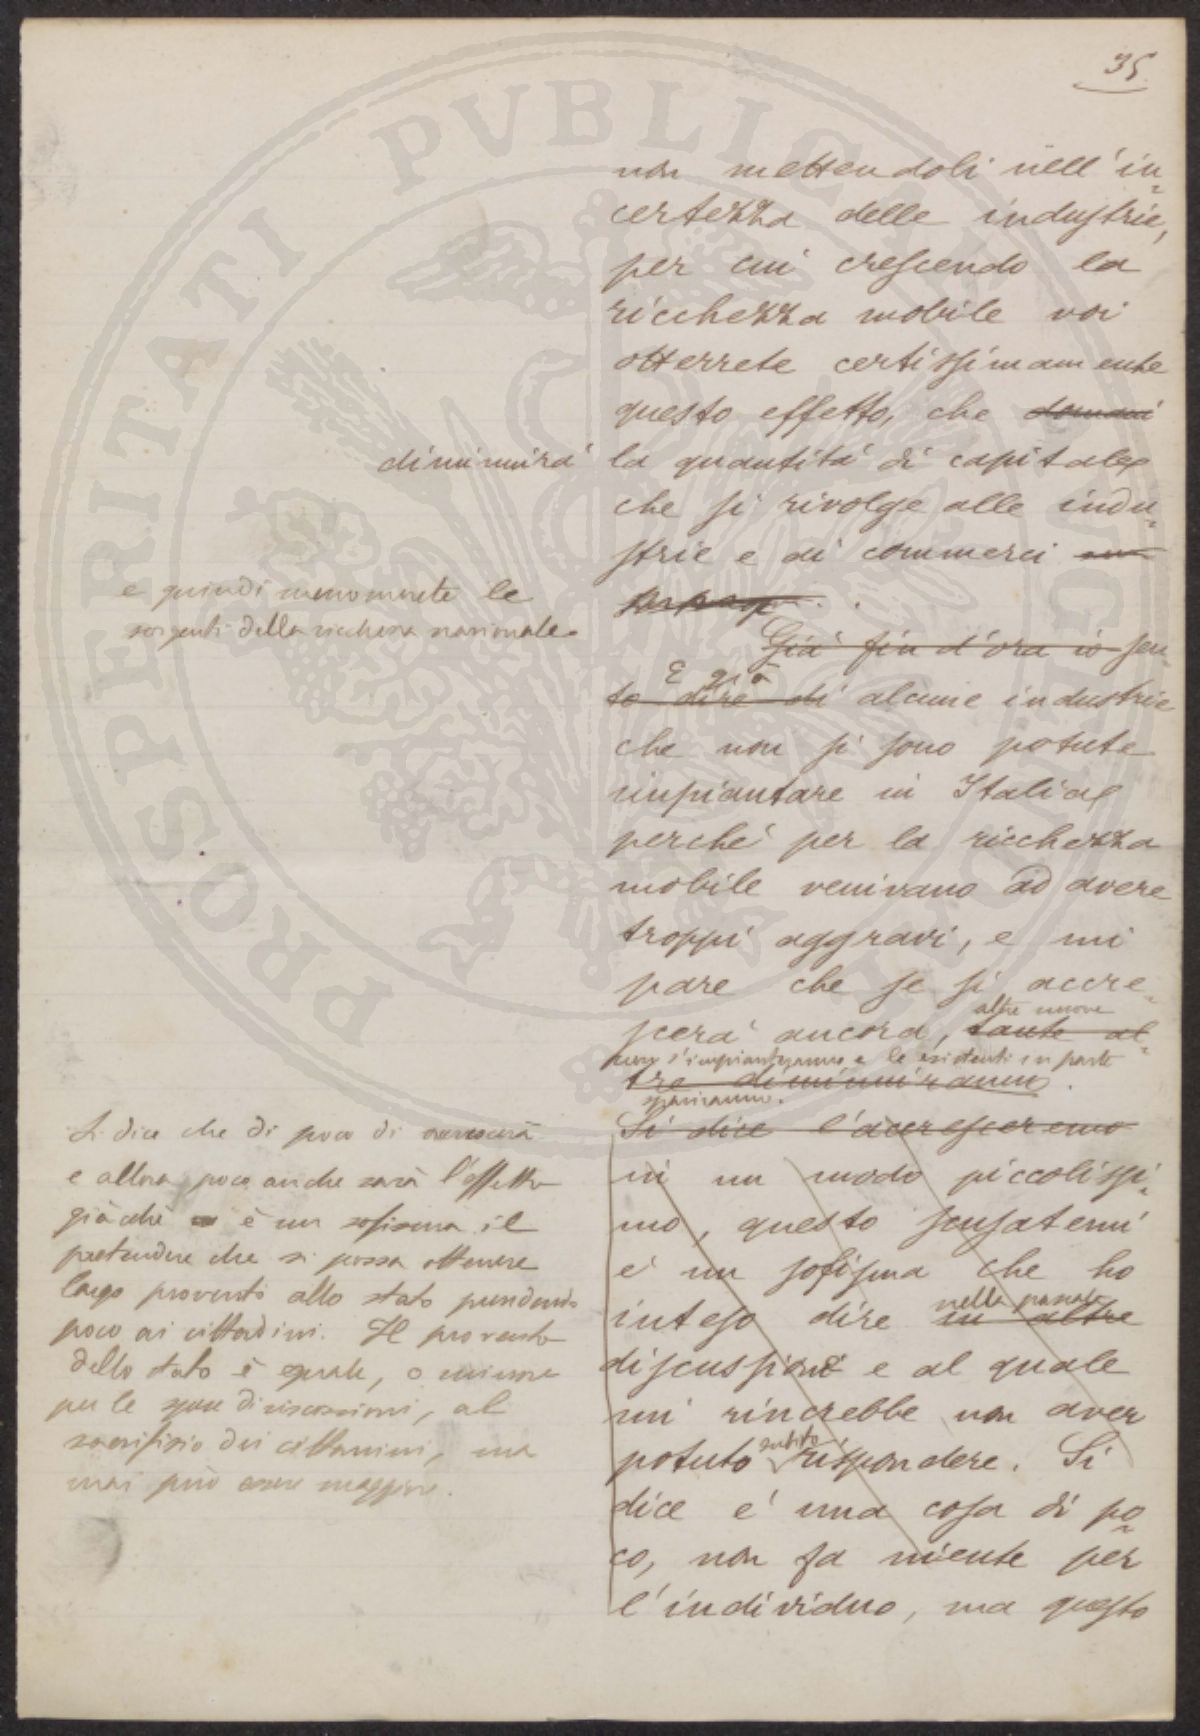 35
non mettendoli nell'in-
certezza delle industrie,
per cui crescendo la
ricchezza mobile voi
otterrete certissimamente
questo effetto, che domani
diminuirà la quantità di capitale
che si rivolge alle indu-
strie e ai commerci
e quindi menomerete le
sorgenti della ricchezza nazionale.
Già fin d'ora io sen-
E già
to dire di alcune industrie
che non si sono potute
impiantare in Italia
perché per la ricchezza
mobile venivano ad avere
troppi aggravi, e mi
pare che se si accre-
altre nuove
scerà ancora, tante al-
non s'impianteranno e le esistenti in parte
tre diminuiranno.
spariranno.
Si dice l'accresceremo
in un modo piccolissi-
mo, questo scusatemi
è un sofisma che ho
nella passata
inteso dire in altre
discussioni e al quale
mi rincrebbe non aver
subito
potuto rispondere. Si
dice è una cosa di po-
co, non fa niente per
l'individuo, ma questo
Si dice che di poco di
e allora poco anche sarà l'effetto
giacchè è un sofisma il
pretendere che si possa ottenere
largo proventi allo stato prendendo
poco ai cittadini. Il provento
dello stato è eguale, o minore
per le spese di riscossioni, al
sacrifizio dei cittadini, ma
mai può essere maggiore.
PROSPERITATI PUBLICAE